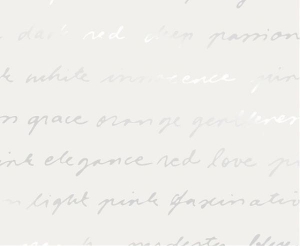 dark red deep passion
white innocence
grace orange gentleness
pink elegance red love
light pink fascinatio
modesty